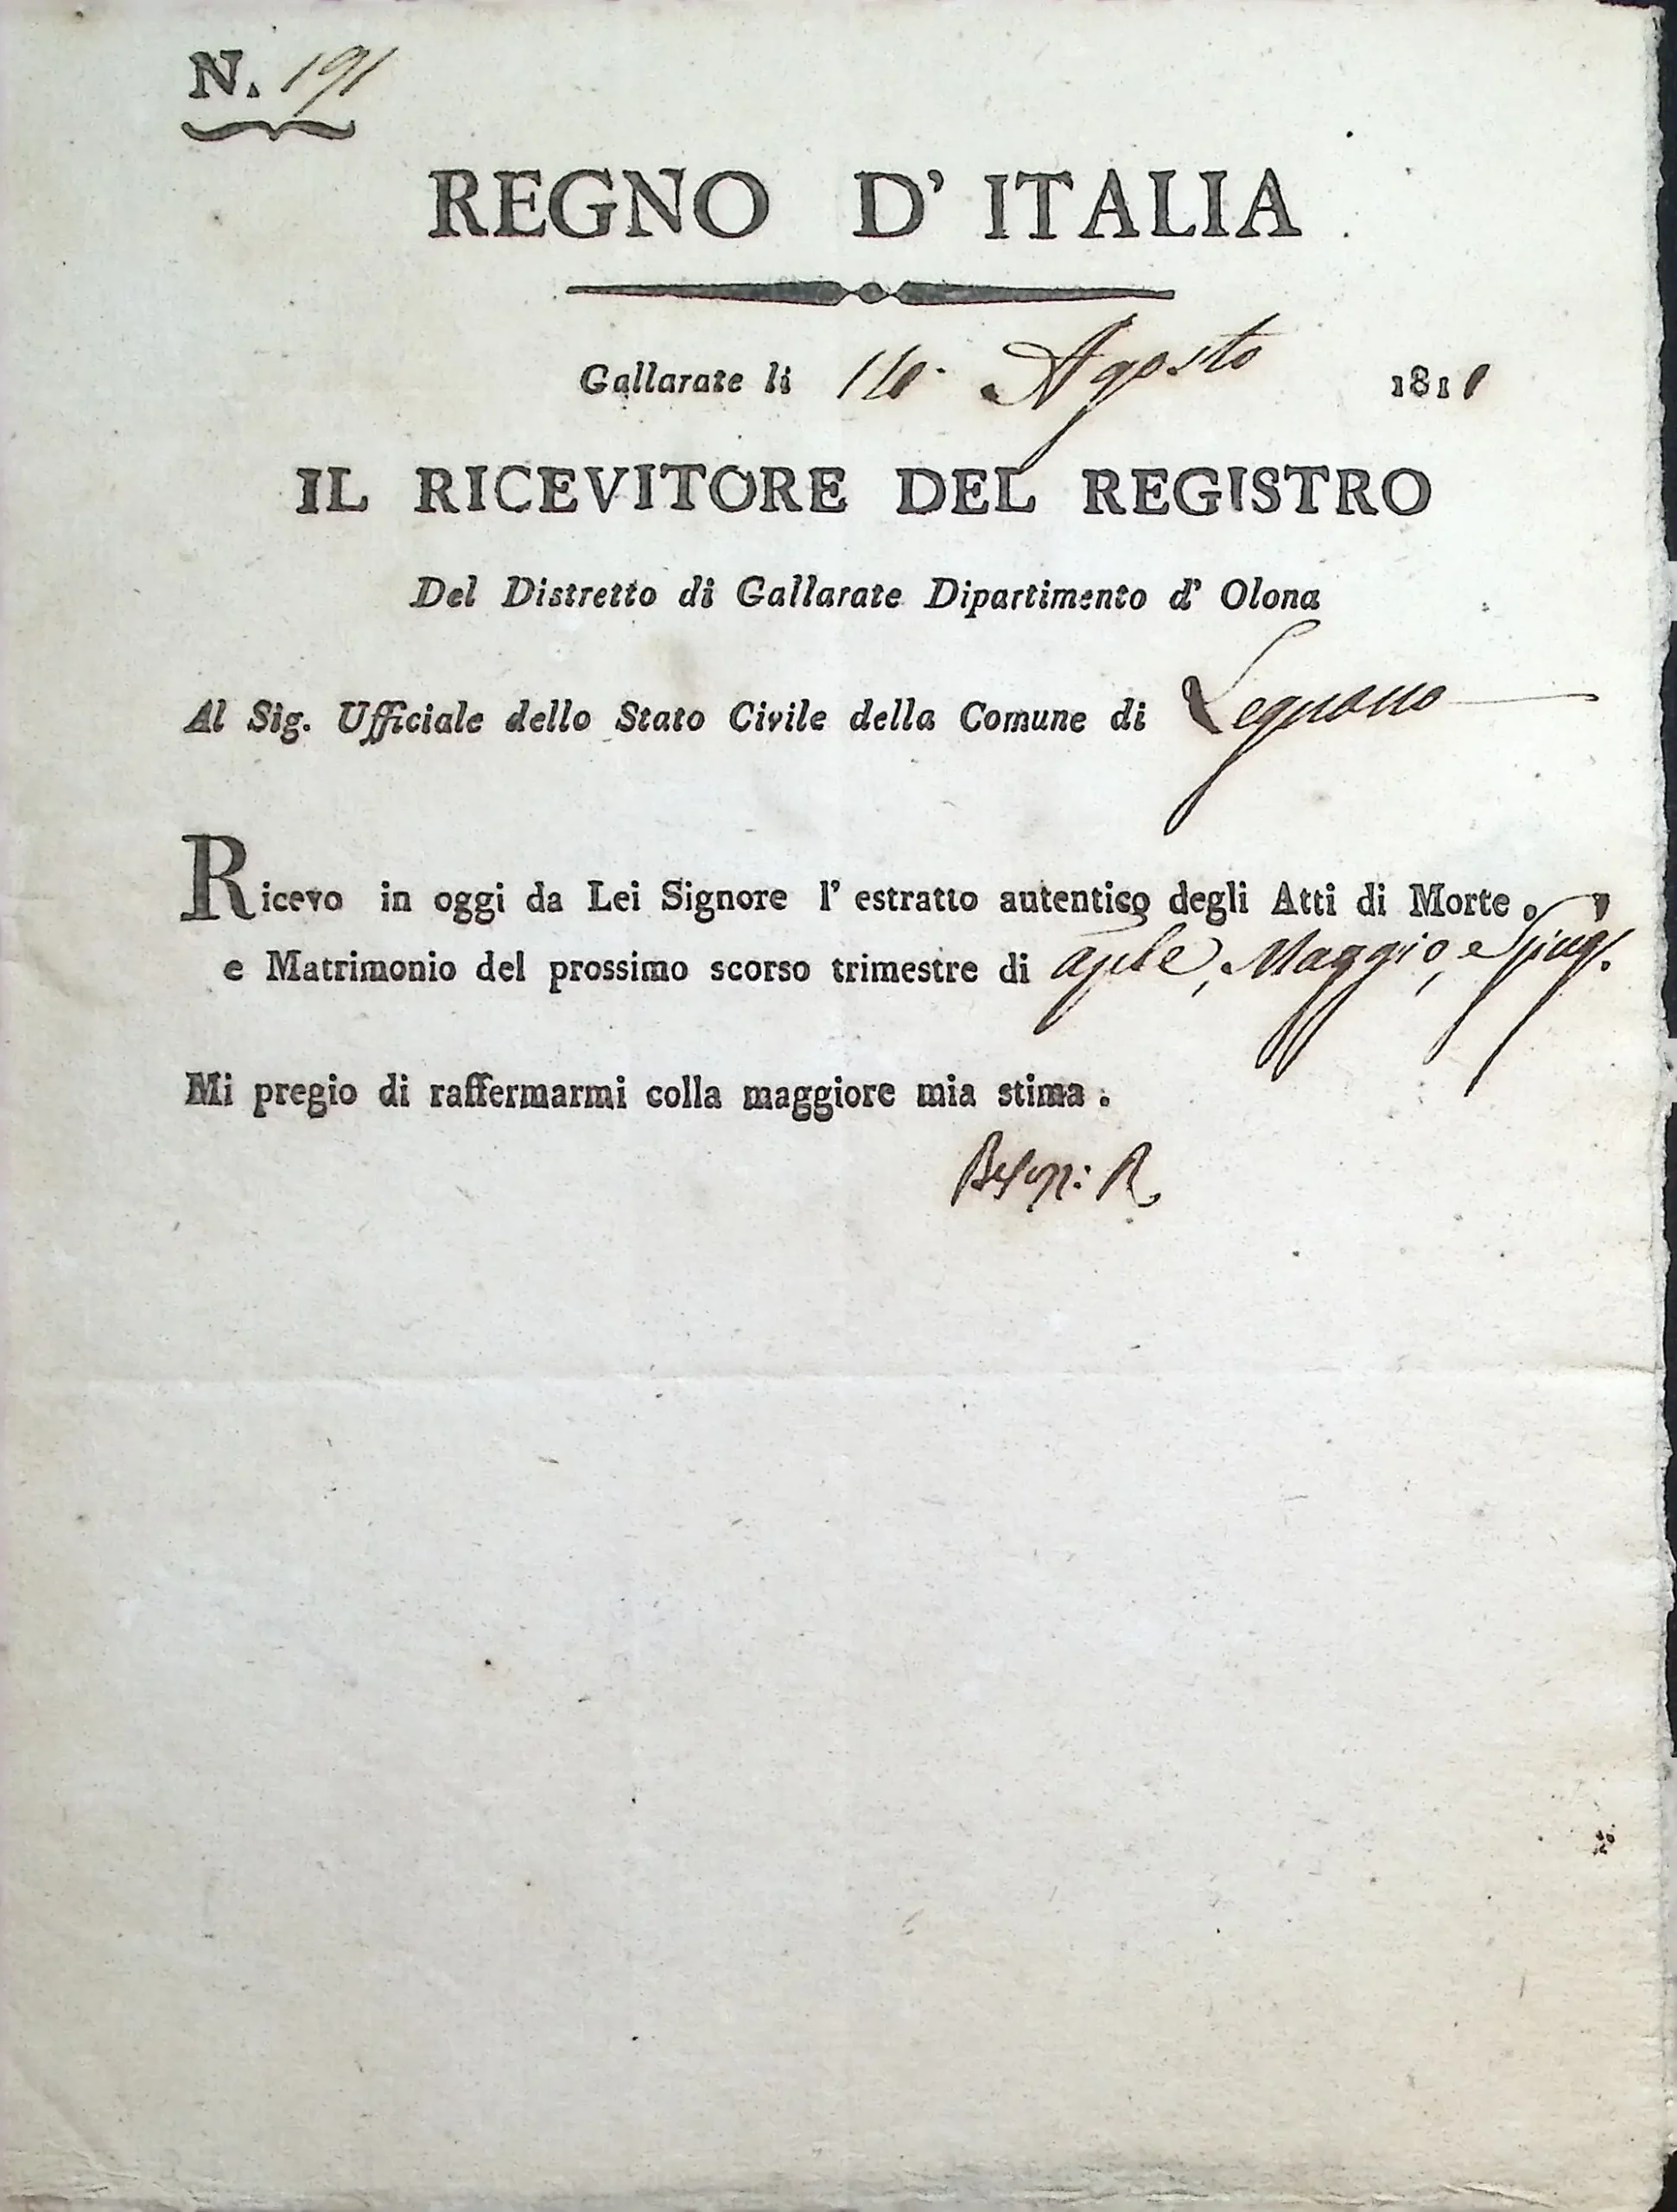 N. 191
REGNO D' ITALIA
Gallarate li Agosto 1811
IL RICEVITORE DEL REGISTRO
Del Distretto di Gallarate Dipartimento d' Olona
Al Sig. Ufficiale dello Stato Civile della Comune di Legnano
Ricevo in oggi da Lei Signore l' estratto autentico degli Atti di Morte,
e Matrimonio del prossimo scorso trimestre di aple, Maggio, e Giug.
Mi pregio di raffermarmi colla maggiore mia stima.